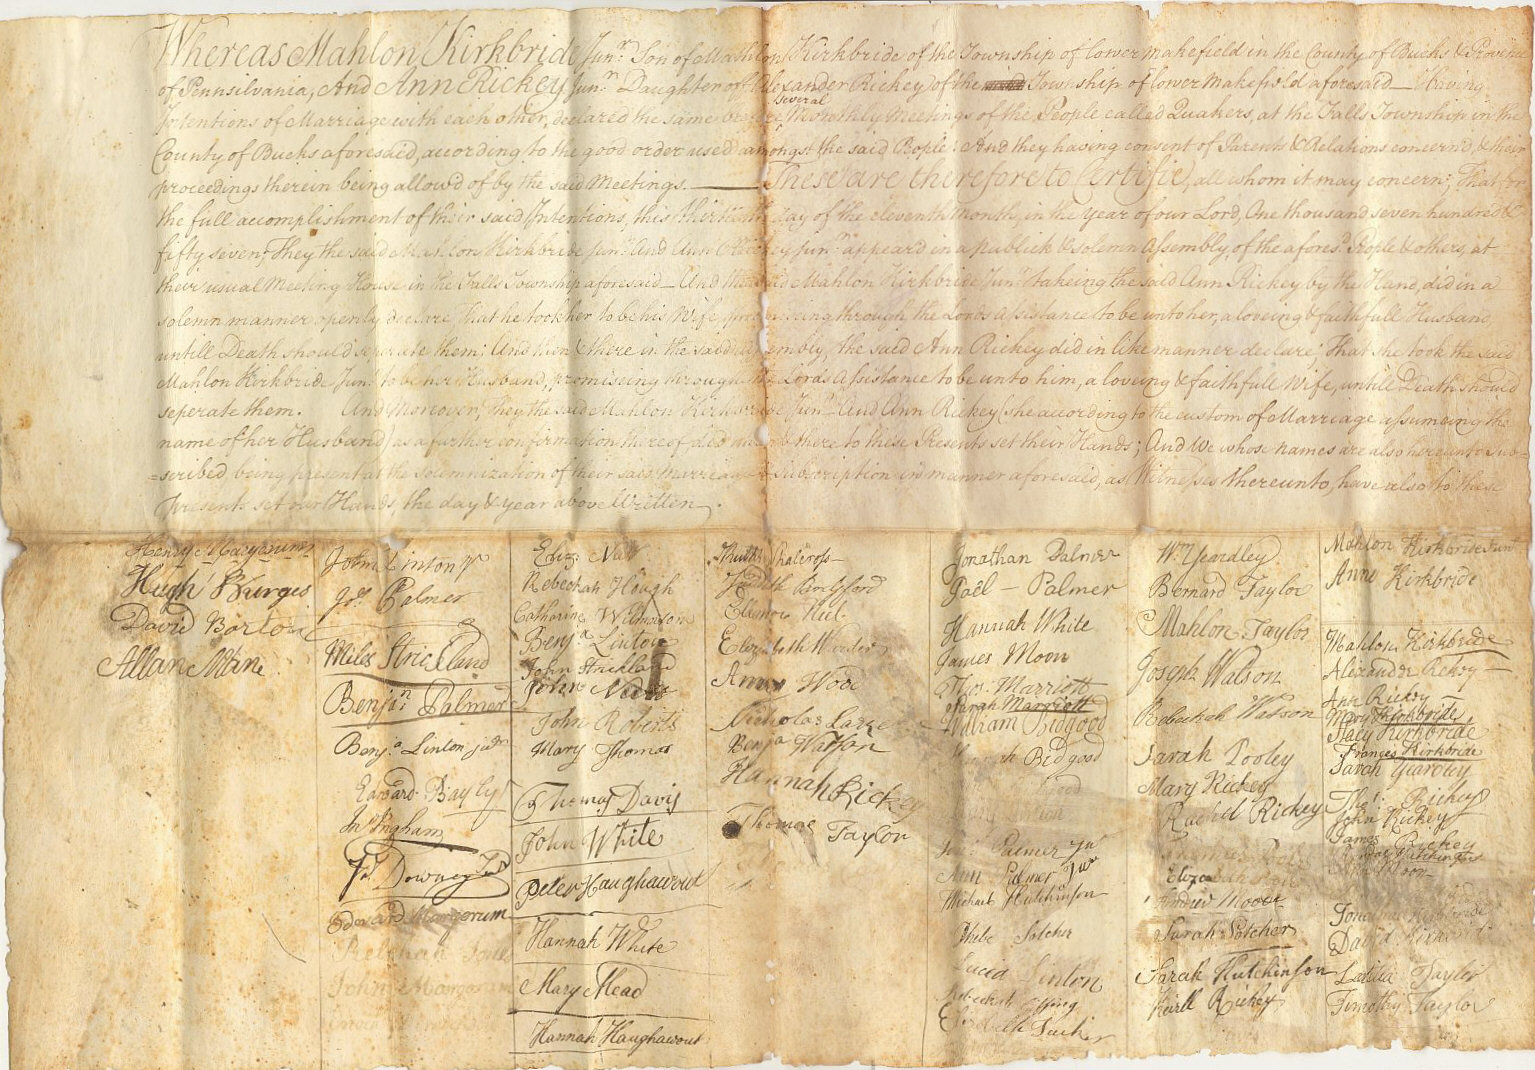 Whereas Mahlon Kirkbride Junr. Son of Mahlon Kirkbride of the Township of lower makefield in the County of Bucks & Province
of Pennsilvania, And Ann Rickey Junr. Daughter of Alexander Rickey of the Township of lower Makefield aforesaid — Having
Intentions of Marriage with each other, declared the same before several Monthly Meetings of the People called Quakers, at the Falls Township in the
County of Bucks aforesaid, according to the good order used amongst the said People: And they having consent of Parents & Relations concern'd, & their
proceedings therein being allow'd of by the said Meetings. — These are therefore to Certifie, all whom it may concern; That for
the full accomplishment of their said Intentions, this thirteenth day of the eleventh month, in the year of our Lord, One thousand seven hundred &
fifty seven; They the said Mahlon Kirkbride Junr. And Ann Rickey Junr. appear'd in a publick & solemn Assembly, of the aforesd. People & others, at
their usual Meeting House in the Falls Township aforesaid — And the said Mahlon Kirkbride Junr. takeing the said Ann Rickey by the Hand, did in a
solemn manner openly declare, That he took her to be his Wife, promiseing through the Lords assistance to be unto her, a loveing & faithfull Husband
untill Death should seperate them; And then & there in the said assembly, the said Ann Rickey did in like manner declare; That she took the said
Mahlon Kirkbride Junr. to be her Husband, promiseing through the Lords Assistance to be unto him, a loveing & faithfull Wife, untill Death should
seperate them. And Moreover, They the said Mahlon Kirkbride Junr. And Ann Rickey (she according to the custom of Marriage assumeing the
name of her Husband) as a further confirmation thereof, did and there to these Presents set their Hands; And We whose names are also hereunto Sub=
=scribed being present at the solemnization of their said Marreage & Subscription in manner aforesaid, as Witnesses thereunto, have also to these
Presents set our Hands, the day & year above Written.
Henry Margerum
Hugh Burges
David Borton
Allan
John Linton
Palmer
Miles Strickland
Benjn. Palmer
Benja. Linton
Edward Bayly
Ingham
Downey
Edward Margerum
John Margerum
Rebeckah Hough
Catharine
Benja. Linton
John Strickland
John
John Roberts
Mary Thomas
Thomas Davis
John White
Peter Haughawout
Hannah White
Mary Mead
Hannah Haughawout
Shalcross
Eleanor
Elizabeth
Ann Wood
Nicholas
Benja Watson
Hannah Rickey
Thomas Taylor
Jonathan Palmer
Palmer
Hannah White
James Moon
Thos. Marriott
Sarah Marriott
William Bidgood
Bidgood
Palmer
Ann Palmer
Michael Hutchinson
Phebe
Lucia Linton
Wm. Yeardley
Bernard Taylor
Mahlon Taylor
Joseph Watson
Rebeckah Watson
Sarah Pooley
Mary Rickey
Rachel Rickey
Andrew Moode
Sarah
Sarah Hutchinson
Keirll Rickey
Mahlon Kirkbride Junr
Anne Kirkbride
Mahlon Kirkbride
Alexander Rickey
Ann Rickey
Mary Kirkbride
Stacy Kirkbride
Frances Kirkbride
Sarah Yeardley
Thos. Rickey
John Rickey
James Rickey
Jonathan Kirkbride
David Kirkbride
Letitia Taylor
Timothy Taylor